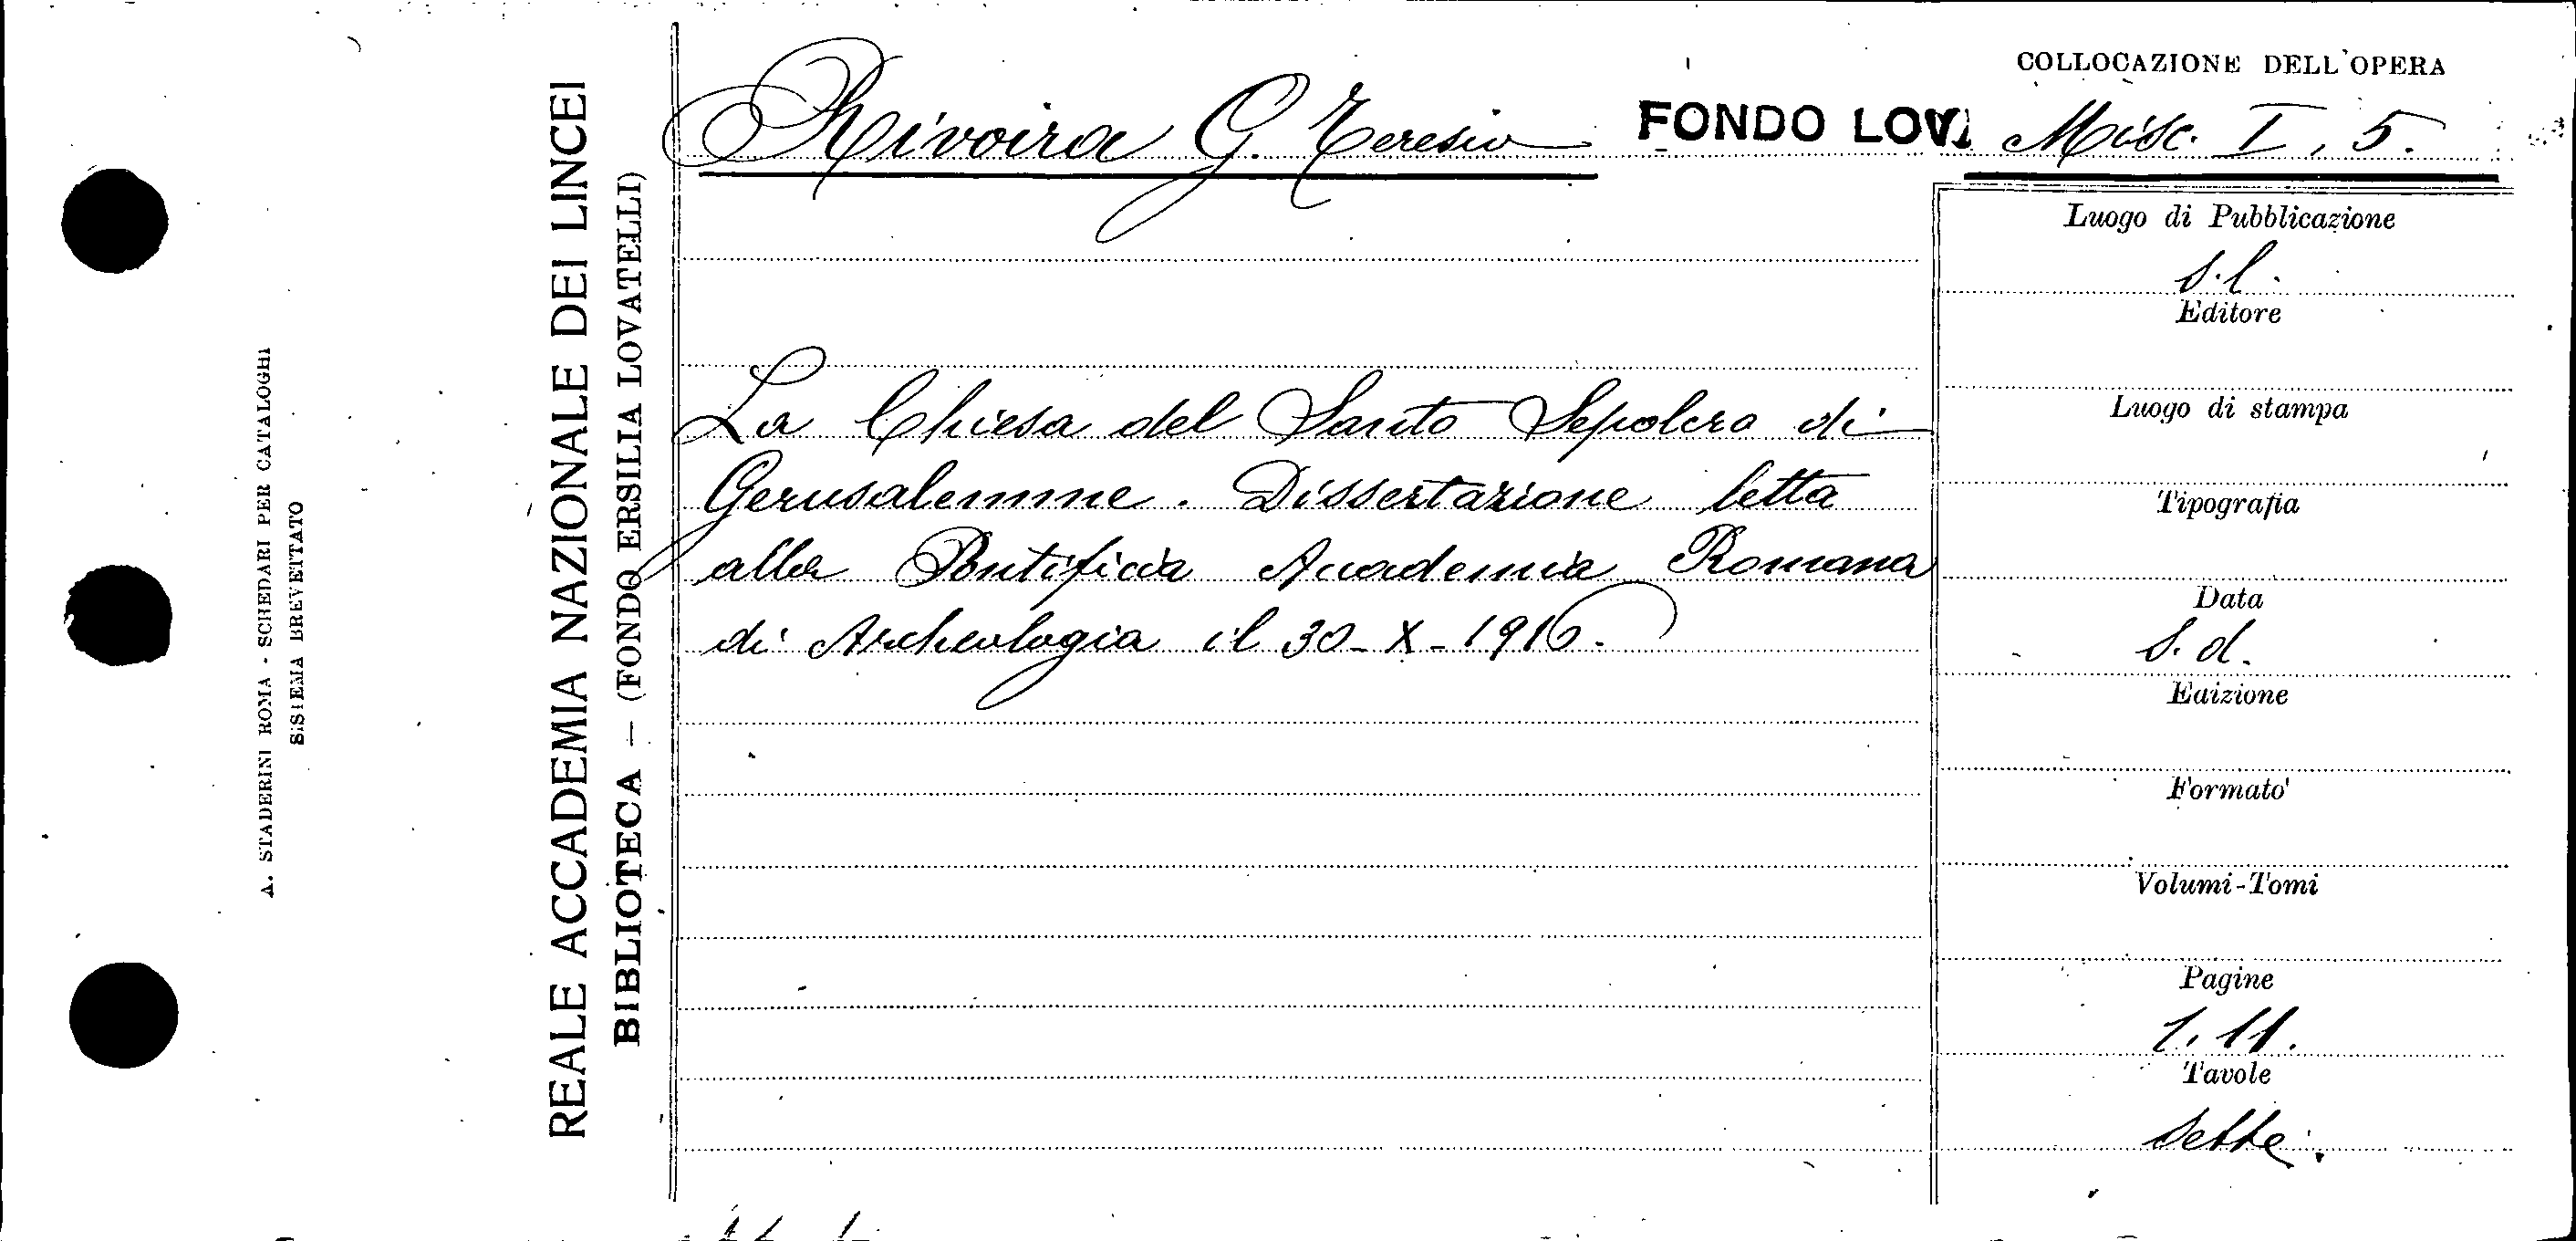 A. STADERINI ROMA - SCHEDARI PER CATALOGHI
SISTEMA BREVETTATO
REALE ACCADEMIA NAZIONALE DEI LINCEI
BIBLIOTECA — (FONDO ERSILIA LOVATELLI)
Rivoira G. Teresio
FONDO LOV
COLLOCAZIONE DELL'OPERA
Misc. I, 5.
La Chiesa del Santo Sepolcro di
Gerusalemme. Dissertazione letta
alla Pontificia Accademia Romana
di Archeologia il 30-X-1916.
Luogo di Pubblicazione
s.l.
Editore
Luogo di stampa
Tipografia
Data
s.d.
Edizione
Formato
Volumi-Tomi
Pagine
1.11.
Tavole
Sette.